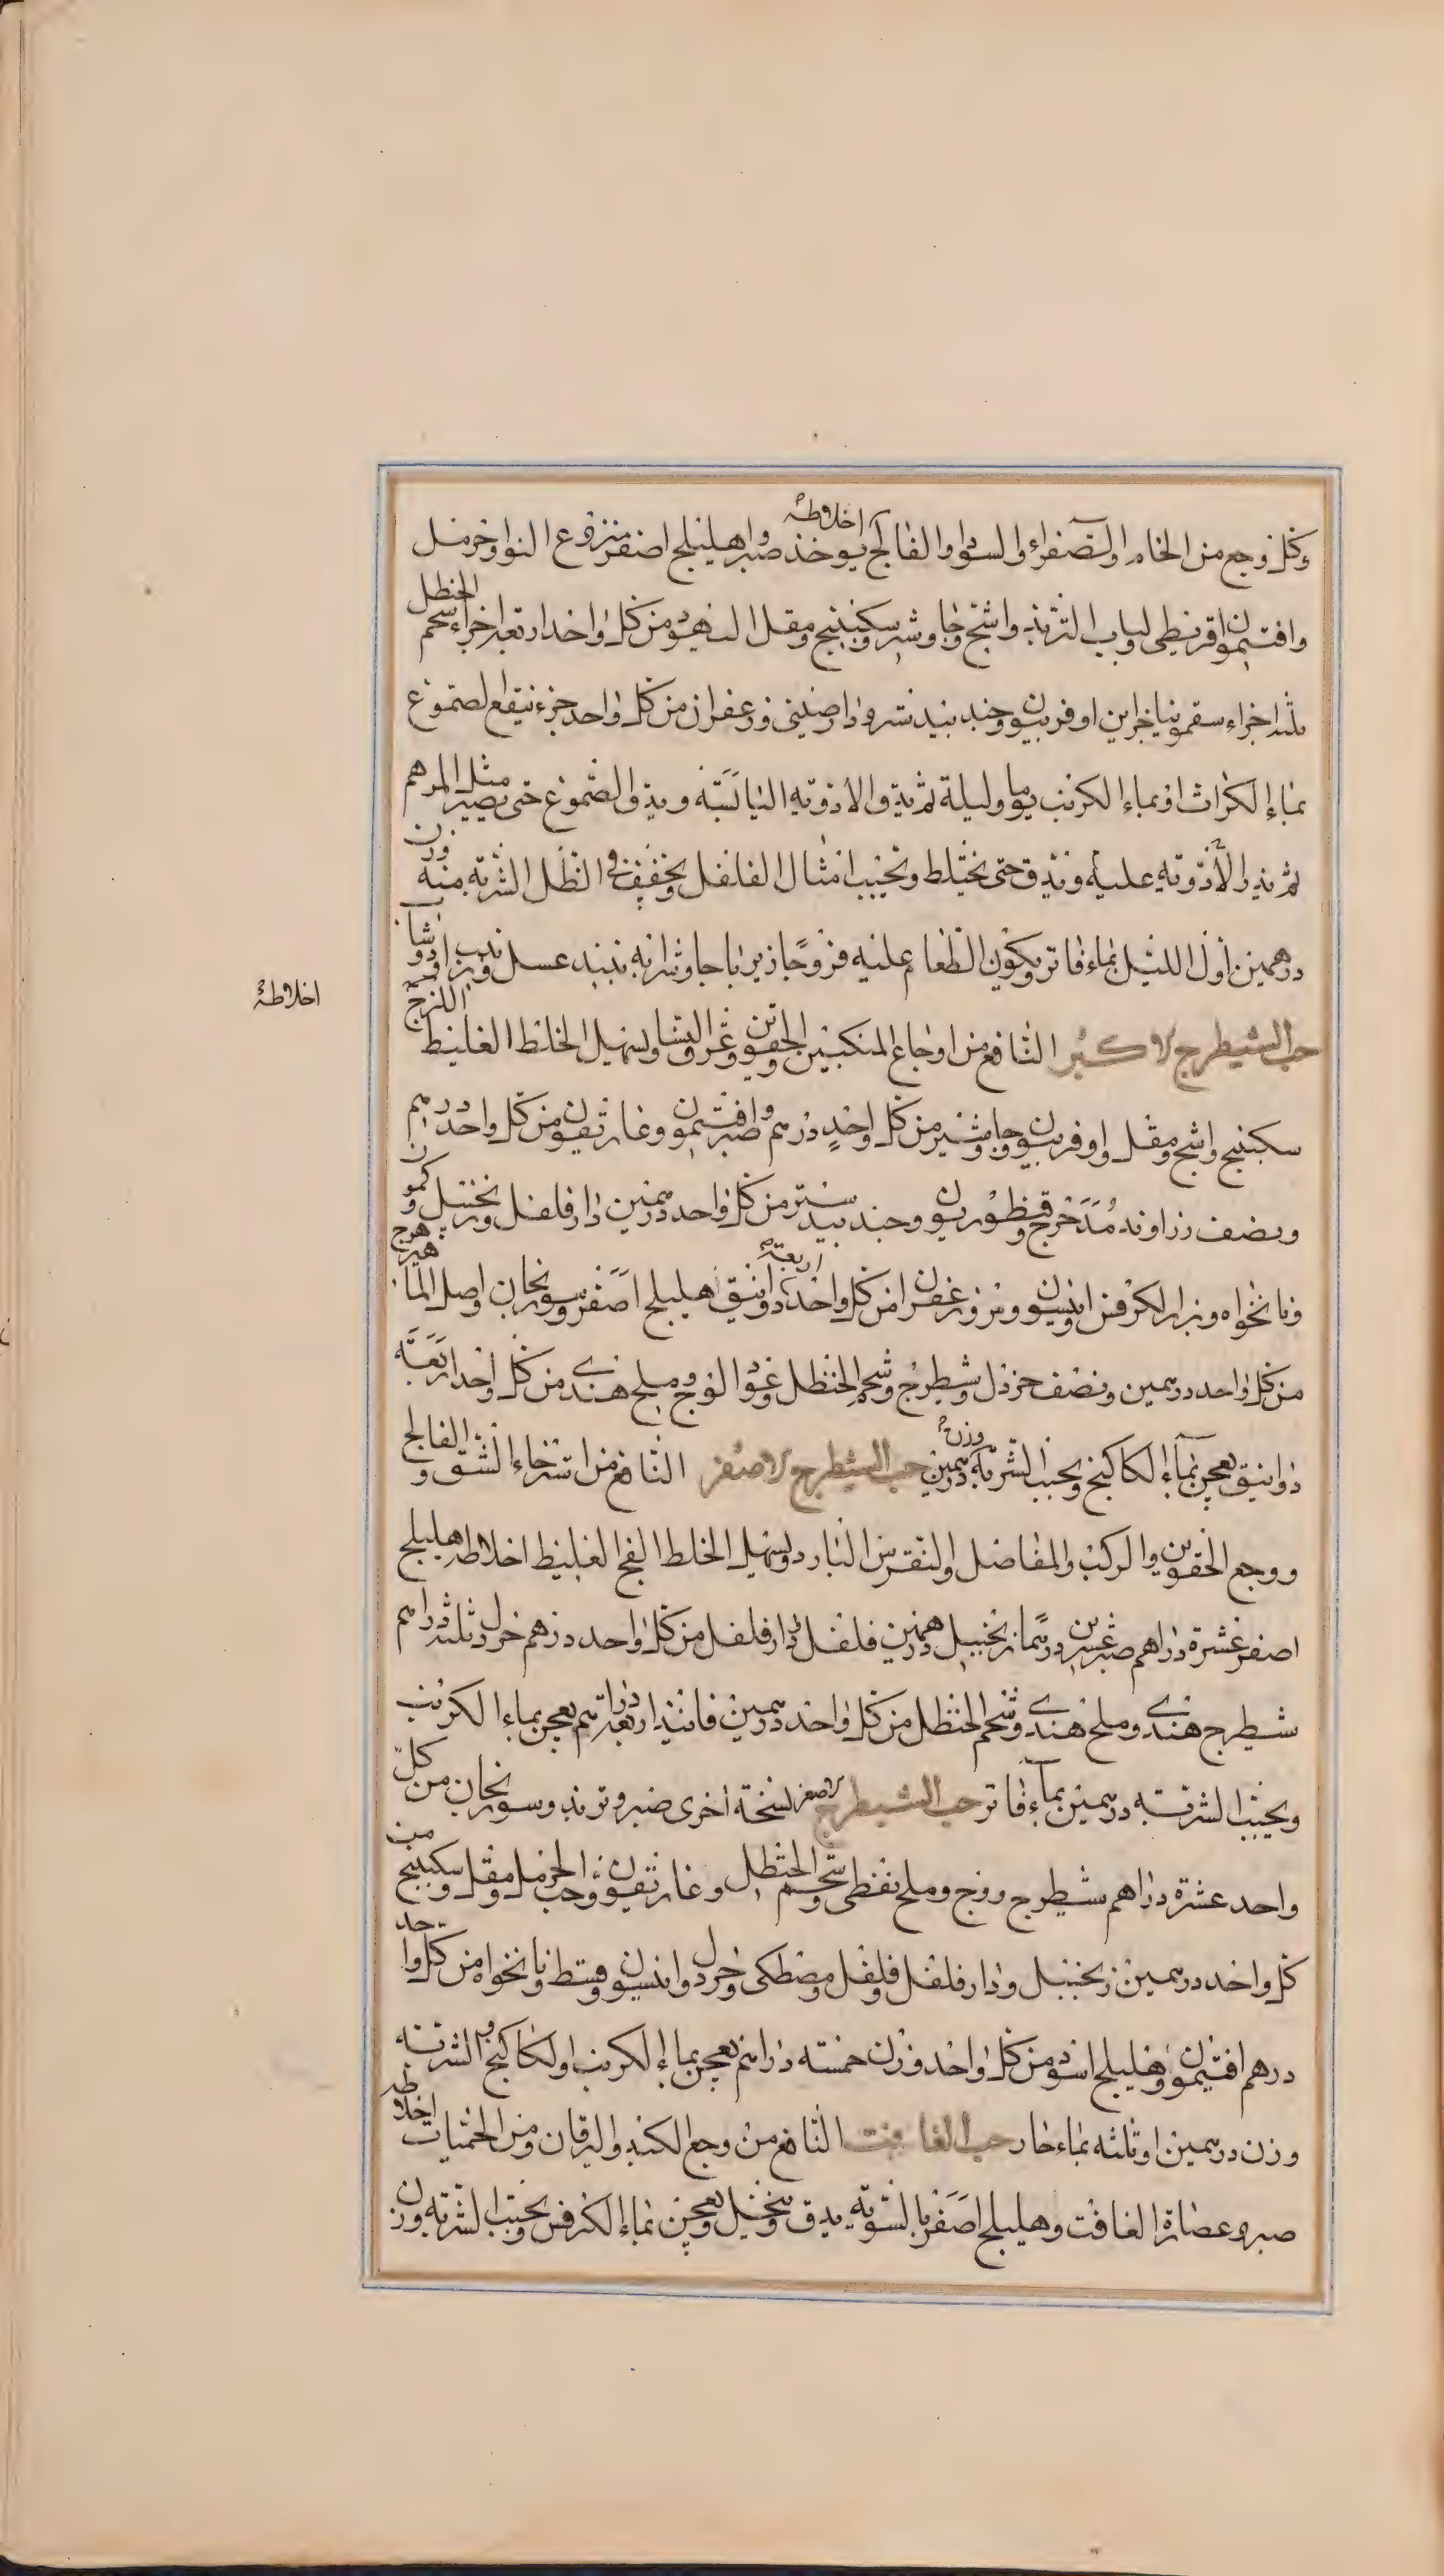 وكل وجع من الخام والصفراء والسوداء والفالج اخلاطه يوخذ صبر واهليلج اصفر منزوع النوا وحرمل
وافتيمون اقريطى ولباب التربذ واشج وجاوشير وسكبينج ومقل اليهود من كل واحد اربعة اجزاء شحم الحنظل
ثلثة اجزاء سقمونيا جزاين اوفربيون وجندبيدستر ودارصينى وزعفران من كل واحد جزء ينقع الصموغ
بماء الكراث او بماء الكرنب يوما وليلة ثم يدق الادوية اليابسة ويدق الصموغ حتى يصير مثل المرهم
ثم يذر الأدوية عليه ويدق حتى يختلط ويحبب امثال الفلفل ويجفف فى الظل الشربة منه وزن
درهمين اول الليل بماء فاتر ويكون الطعام عليه فروجا زيرباجا وشرابه نبيذ عسل او نبيذ دوشاب
حب الشيطرج الاكبر النافع من اوجاع المنكبين والحقوين وعرق النسا ويسهل الخلط الغليظ اللزج
اخلاطه
سكبينج واشج ومقل واوفربيون وجاوشير من كل واحد درهم وصبر وافتيمون وغاريقون من كل واحد درهم
ونصف زراوند مدحرج وقنطوريون وجندبيدستر من كل واحد درهمين دارفلفل وزنجبيل وكمون
ونانخواه وبزر الكرفس وانيسون ومر وزعفران من كل واحد اربعة دوانيق اهليلج اصفر وسورنجان واصل الماهيزهرج
من كل واحد درهمين ونصف خردل وشيطرج وشحم الحنظل وعود الوج وملح هندى من كل واحد اربعة
دوانيق يعجن بماء الكاكنج ويحبب الشربة وزن درهمين حب الشيطرج الاصغر النافع من استرخاء الشق والفالج
ووجع الحقوين والركب والمفاصل والنقرس البارد ويسهل الخلط الفج الغليظ اخلاطه اهليلج
اصفر عشرة دراهم صبر عشرين درهما زنجبيل درهمين فلفل دارفلفل من كل واحد درهم خردل ثلثة دراهم
شيطرج هندى وملح هندى وشحم الحنظل من كل واحد درهمين فانيذ اربعة دراهم يعجن بماء الكرنب
ويحبب الشربة درهمين بماء فاتر حب الشيطرج الاصغر نسخة اخرى صبر وتربذ وسورنجان من كل
واحد عشرة دراهم شيطرج ووج وملح نفطى وشحم الحنظل وغاريقون وحب الحرمل ومقل وسكبينج من
كل واحد درهمين زنجبيل ودارفلفل وفلفل ومصطكى وخردل وانيسون وقسط ونانخواه من كل واحد
درهم افتيمون وهليلج اسود من كل واحد وزن خمسة دراهم يعجن بماء الكرنب او الكاكنج والشربة
وزن درهمين او ثلثه بماء حار حب الغافت النافع من وجع الكبد واليرقان ومن الحميات اخلاطه
صبر وعصارة الغافت وهليلج اصفر بالسوية يدق وينخل ويعجن بماء الكرفس ويحبب الشربة وزن